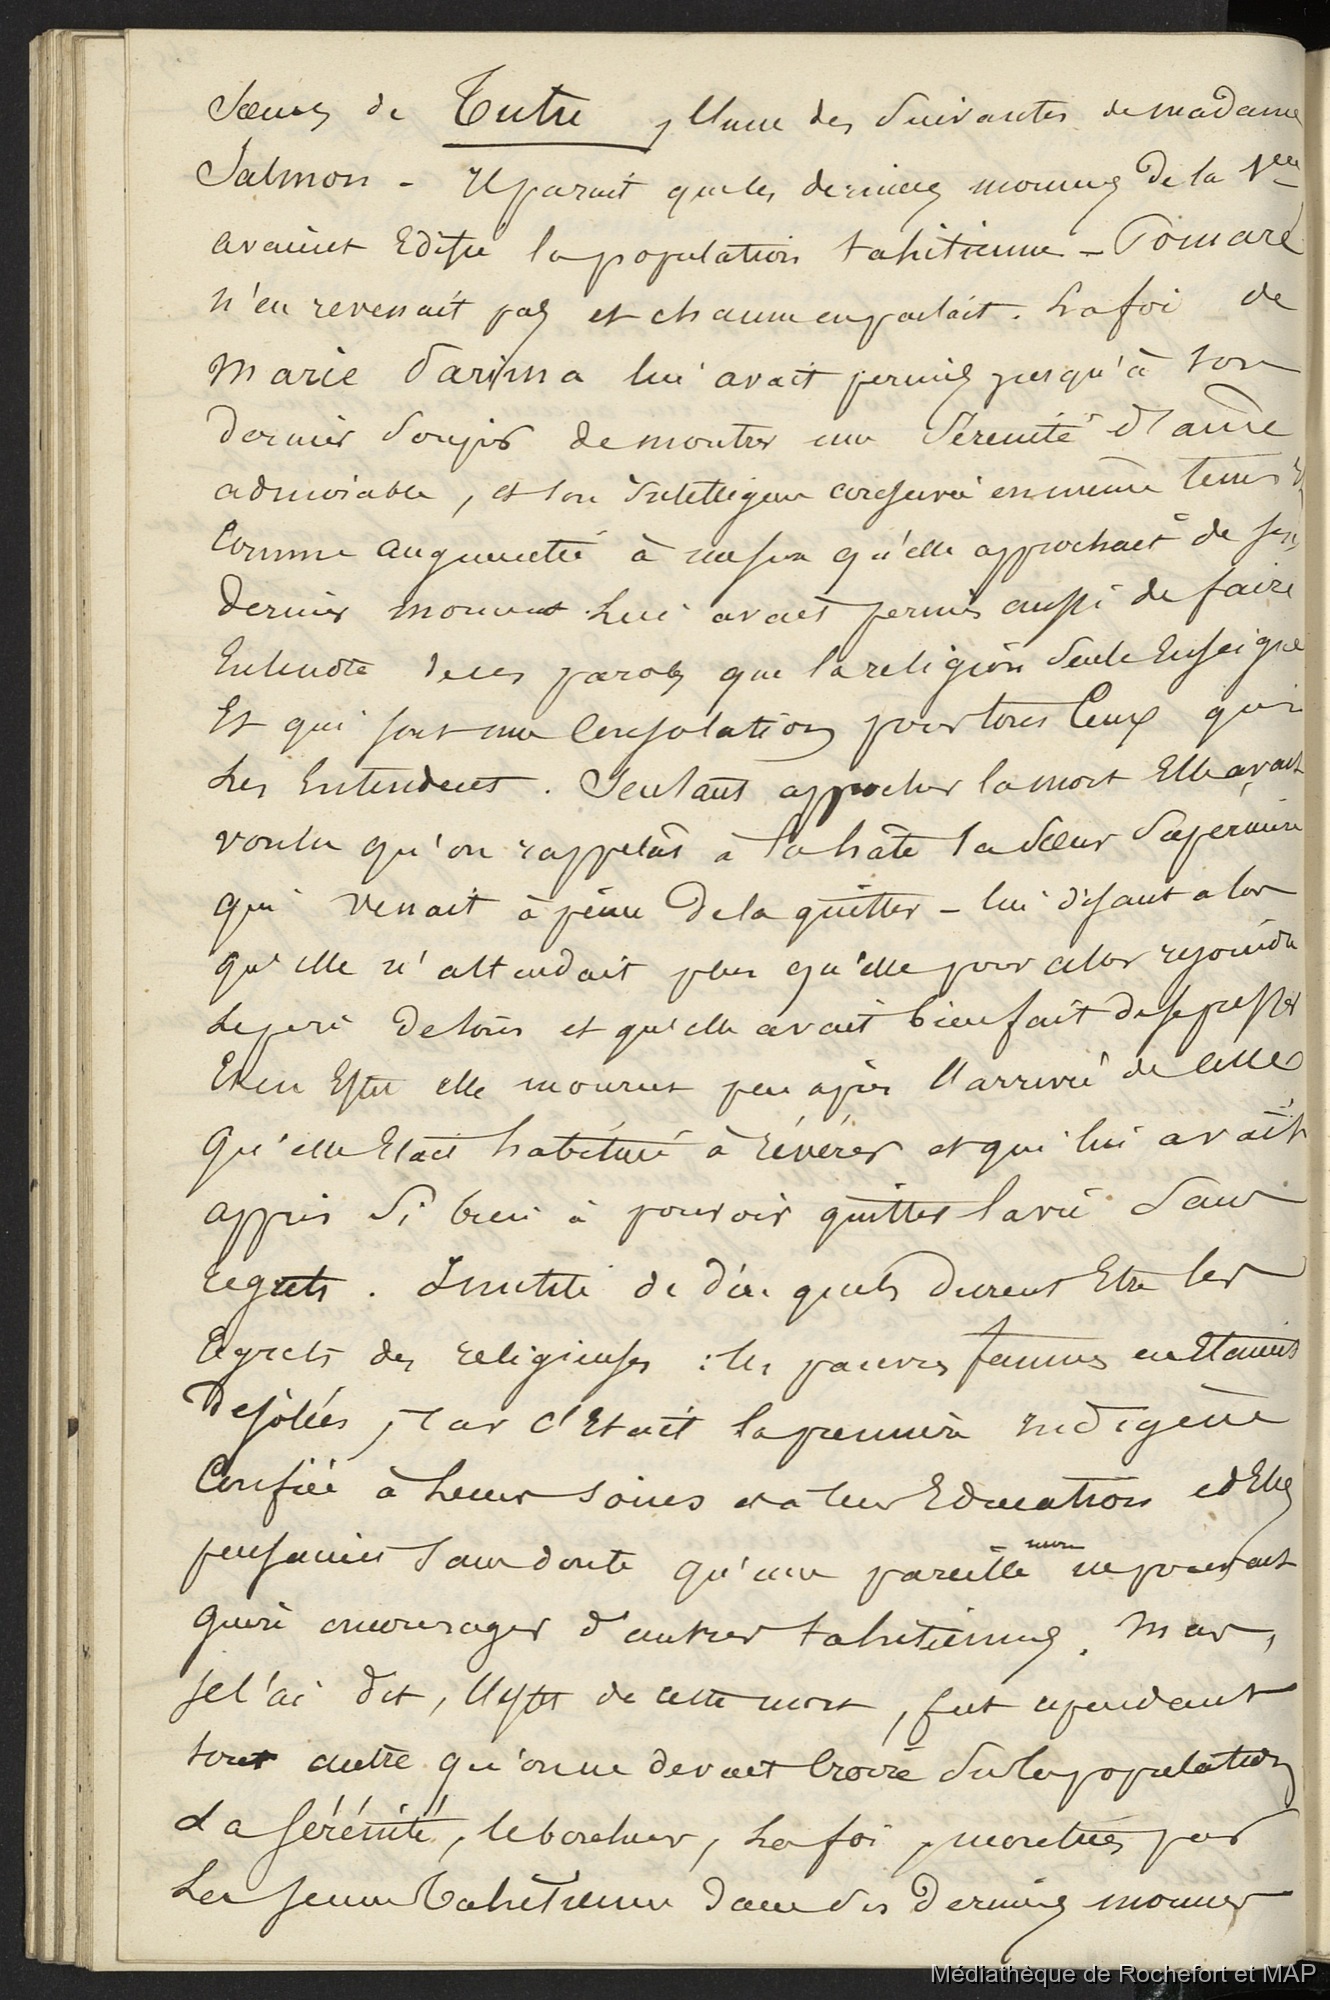 Sœurs de Tutu, l'une des Suivantes de madame
Salmon - Il parait que les derniers momens de la
avaient Edifié la population tahitienne - Pomaré
n'en revenait pas et chacun en parlait. La foi de
Marie Darima lui avait permis jusqu'à son
dernier Soupir de montrer une Sérénité d'âme
admirable, et son Intelligence conservée en même tems &
Comme augmentée à mesure qu'elle approchait de ses
derniers momens Lui avait permis aussi de faire
Entendre de ces paroles que la religion Seule Enseigne
Et qui sont une Consolation pour tous Ceux qui
Les Entendent. Sentant approcher la mort Elle avait
voulu qu'on rappelât à la hâte la Sœur Supérieure
qui venait à peine de la quitter - lui disant alors
qu'elle n'attendait plus qu'elle pour aller rejoindre
Le père de tous et qu'elle avait bien fait de se presser
Et en Effet elle mourut peu après l'arrivée de celle
qu'elle Etait habituée à révérer et qui lui avait
appris Si bien à pouvoir quitter la vie Sans
regrets. Inutile de dire quels durent Etre les
regrets des religieuses : les pauvres femmes en Etaient
Désolées, car c'Etait la première Indigène
Confiée à Leurs soins et à leur Education et Elles
pensaient Sans doute qu'une pareille mort ne pouvait
guère encourager d'autres tahitiennes. Mais,
je l'ai dit, l'effet de cette mort, fut cependant
tout autre qu'on ne devait Croire Sur la population
La Sérénité, le bonheur, La foi, montrés par
La jeune Tahitienne dans ses Derniers momens
Médiathèque de Rochefort et MAP